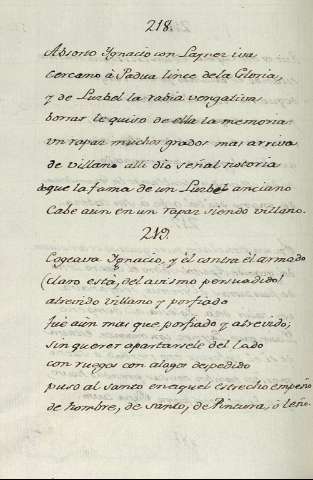 218.
Absorto Ygnacio con Laynez iva
cercano à Padua lince de la Gloria
y de Luzbel la rabia vengativa
borrar le quiso de ella la memoria
un rapaz muchos grados mas arriva
de villano alli dio señal notoria
que la fama de un Luzbel anciano
Cabe aun en un rapaz siendo villano.
219.
Cogeava Ygnacio, y él contra él armado
(claro está, del avismo persuadido)
atrevido villano y porfiado
fue aún mas que porfiado y atrevido;
sin querer apartarsele del lado
con ruegos con alagos despedido
puso al santo en aquel estrecho empeño
de hombre, de santo, de Pintura, ò leño.